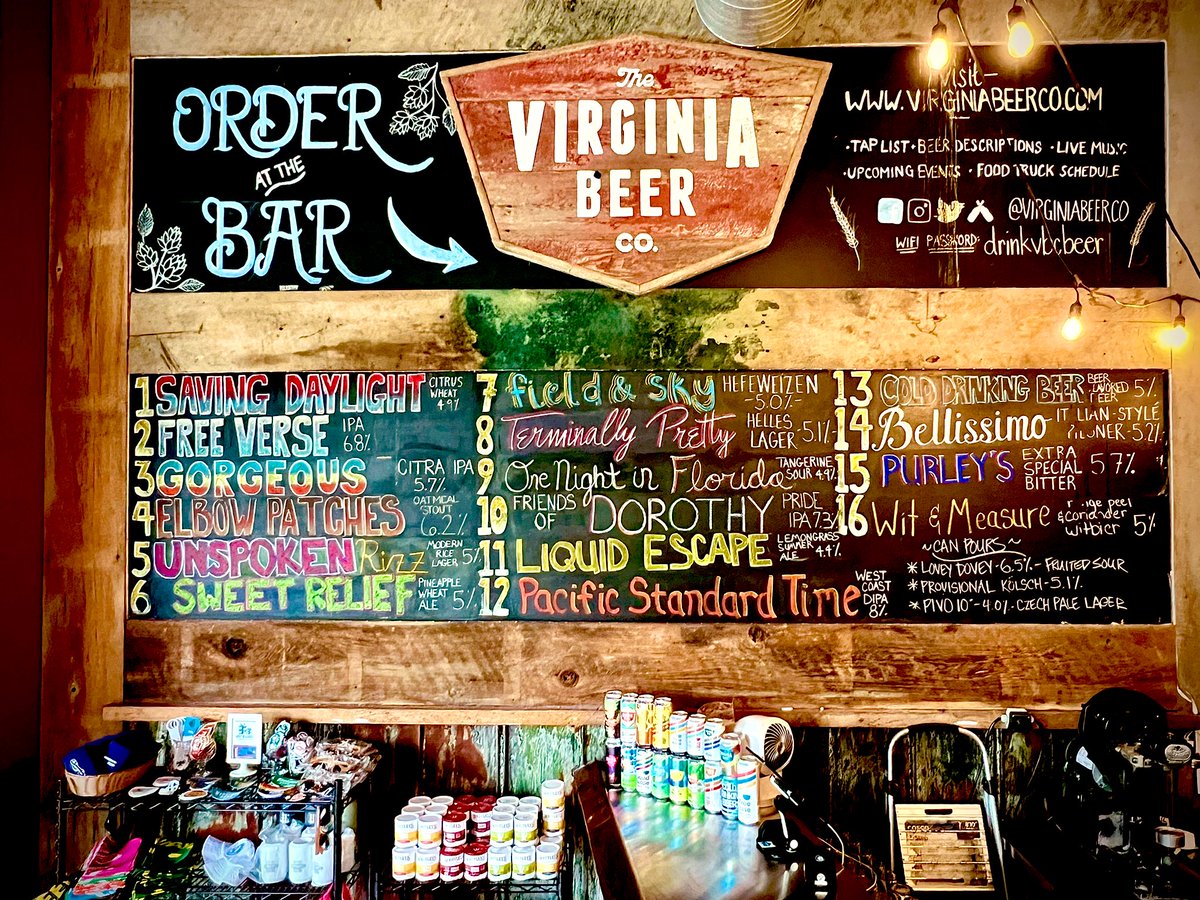 ORDER
AT THE
BAR
The
VIRGINIA
BEER
CO.
Visit-
WWW.VIRGINIABEERCO.COM
•TAP LIST•BEER DESCRIPTIONS • LIVE MUSIC
•UPCOMING EVENTS • FOOD TRUCK SCHEDULE
@VIRGINIABEERCO
WIFI PASSWORD: drinkvbcbeer
1 SAVING DAYLIGHT CITRUS WHEAT 4.9%
2 FREE VERSE IPA 6.8%
3 GORGEOUS CITRA IPA 5.7%
4 ELBOW PATCHES OATMEAL STOUT 6.2%
5 UNSPOKEN Rizz MODERN RICE LAGER 5%
6 SWEET RELIEF PINEAPPLE WHEAT ALE 5%
7 field & sky HEFEWEIZEN -5.0%-
8 Terminally Pretty HELLES LAGER -5.1%
9 One Night in Florida TANGERINE SOUR 4.9%
10 FRIENDS OF DOROTHY PRIDE IPA 7.3%
11 LIQUID ESCAPE LEMONGRASS SUMMER ALE 4.4%
12 Pacific Standard Time WEST COAST DIPA 8%
13 COLD DRINKING BEER BEER FLAVORED BEER 5%
14 Bellissimo ITALIAN-STYLE PILSNER -5.2%
15 PURLEY'S EXTRA SPECIAL BITTER 5.7%
16 Wit & Measure orange peel & coriander witbier 5%
~CAN POURS~
* LOVEY DOVEY -6.5%- FRUITED SOUR
* PROVISIONAL KÖLSCH -5.1%
* PIVO 10° -4.0%- CZECH PALE LAGER